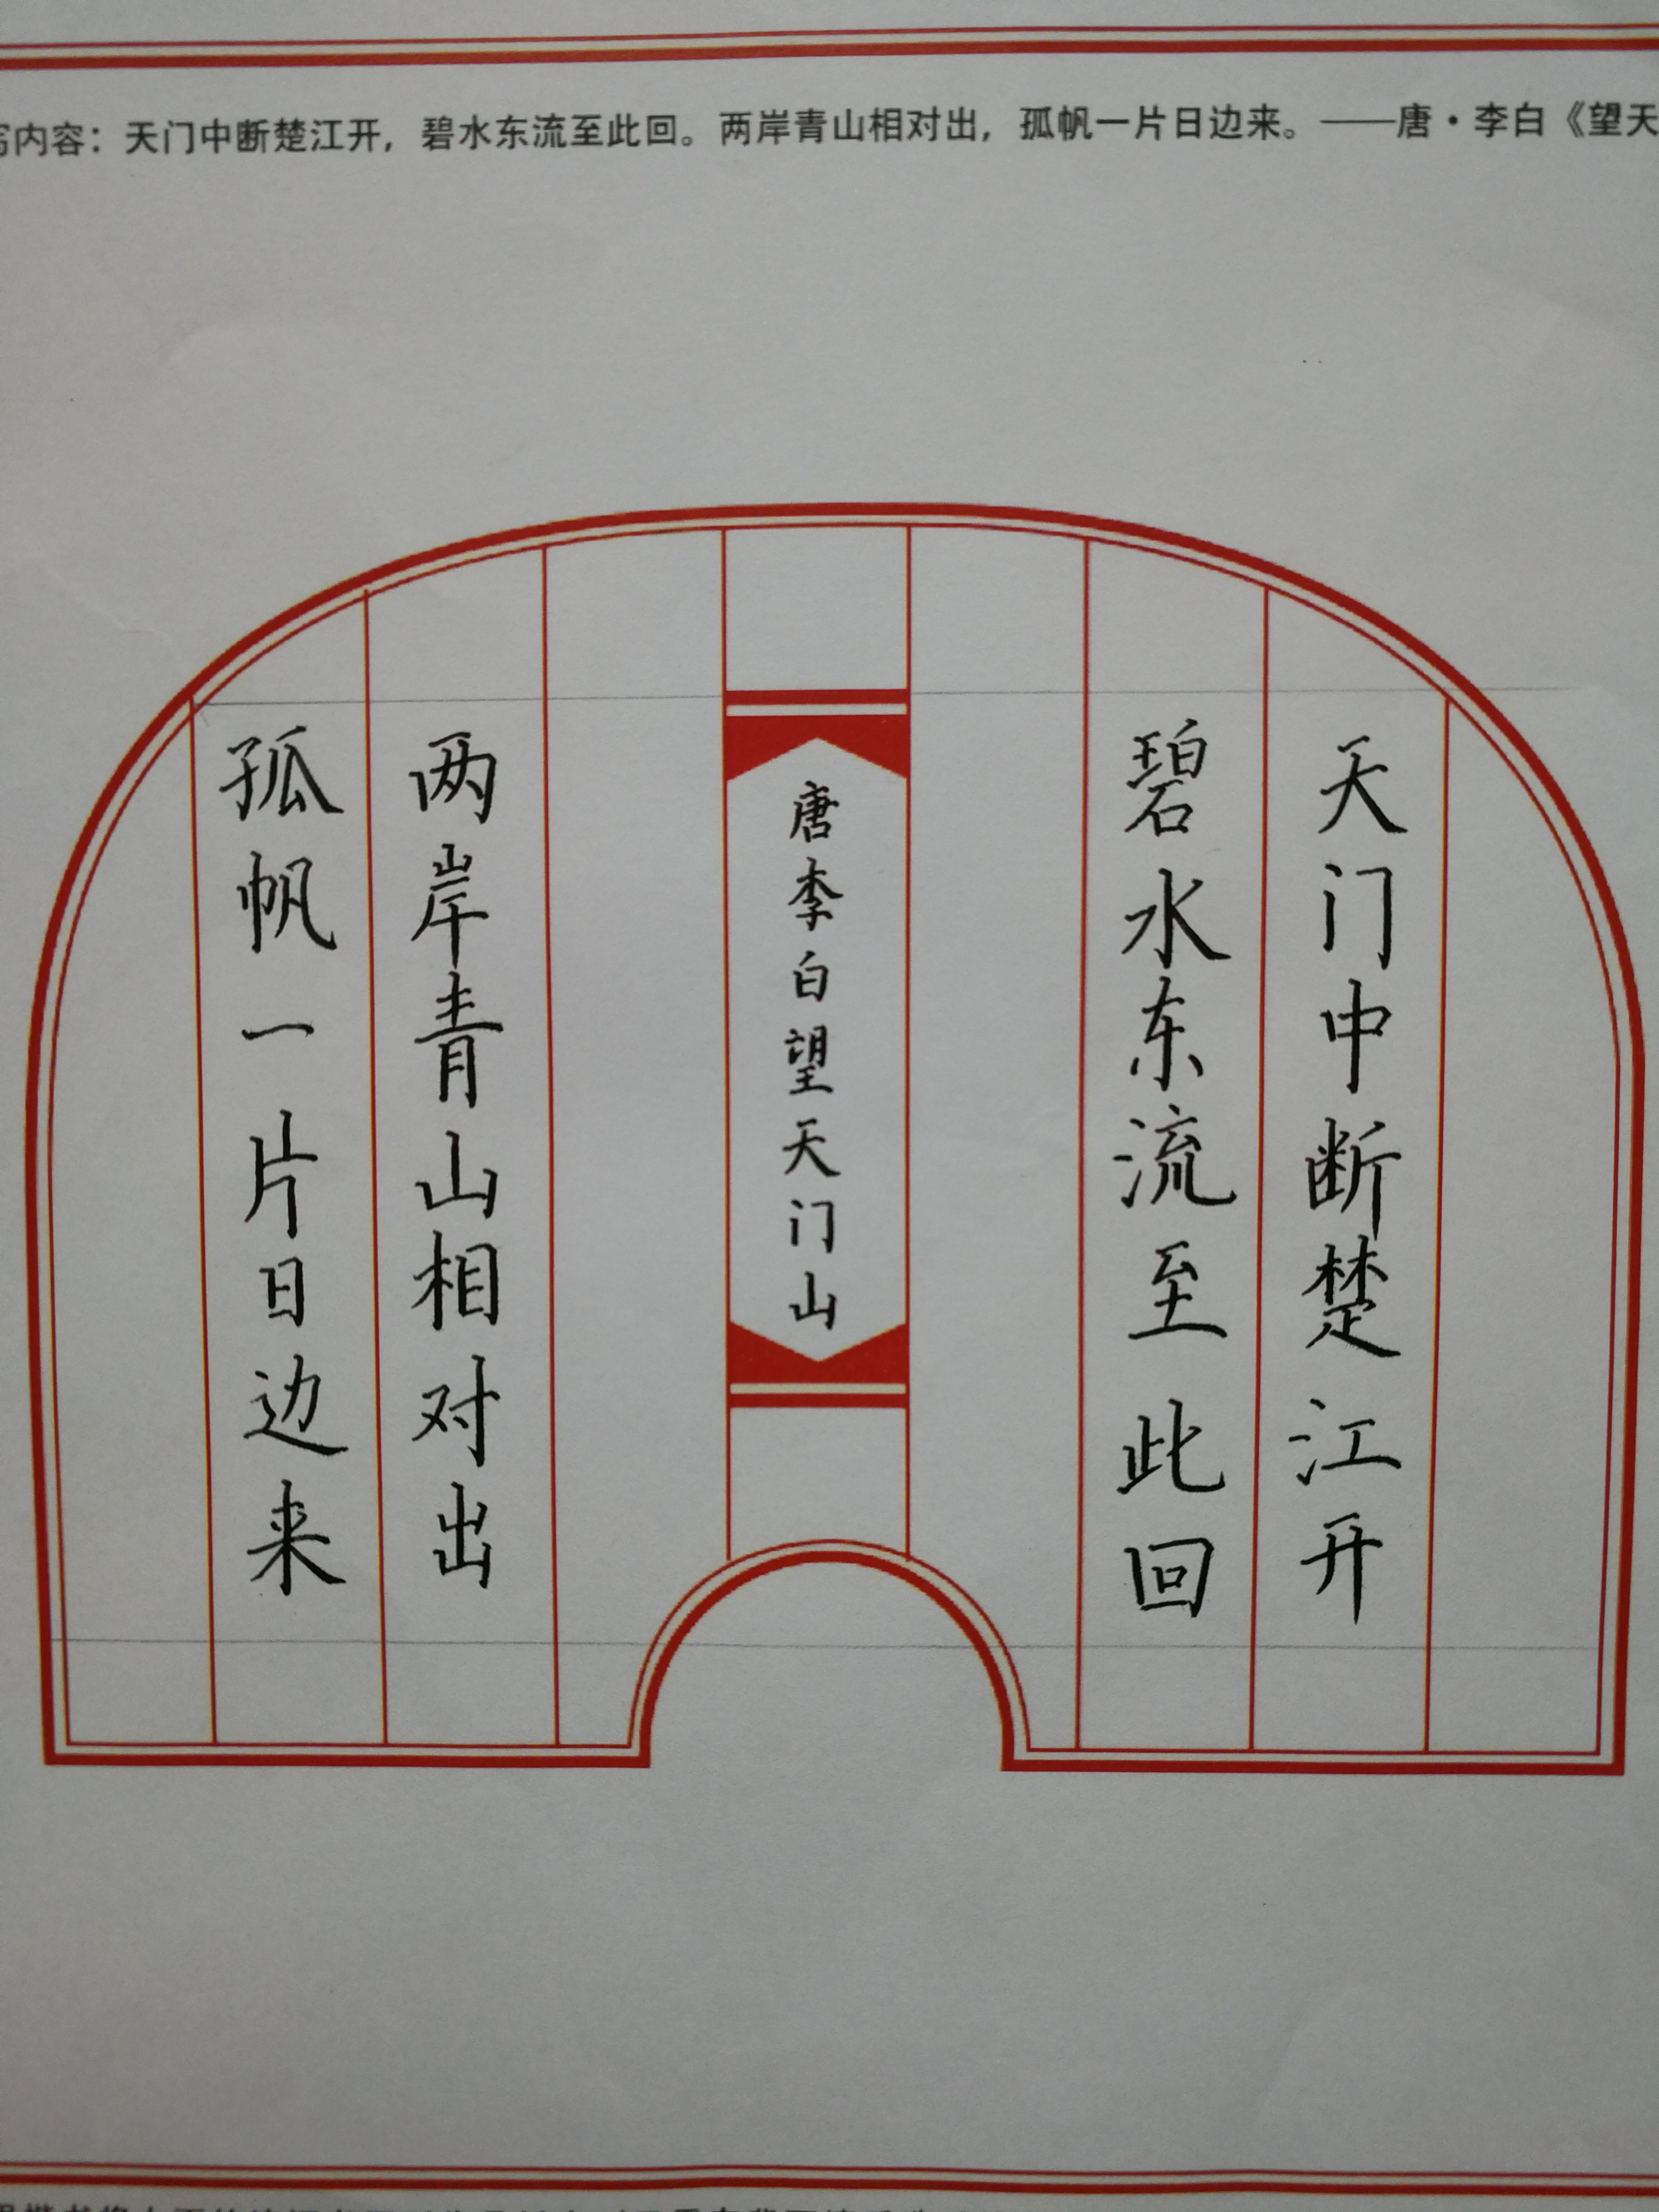 写内容：天门中断楚江开，碧水东流至此回。两岸青山相对出，孤帆一片日边来。——唐·李白《望天
天门中断楚江开
碧水东流至此回
唐李白望天门山
两岸青山相对出
孤帆一片日边来